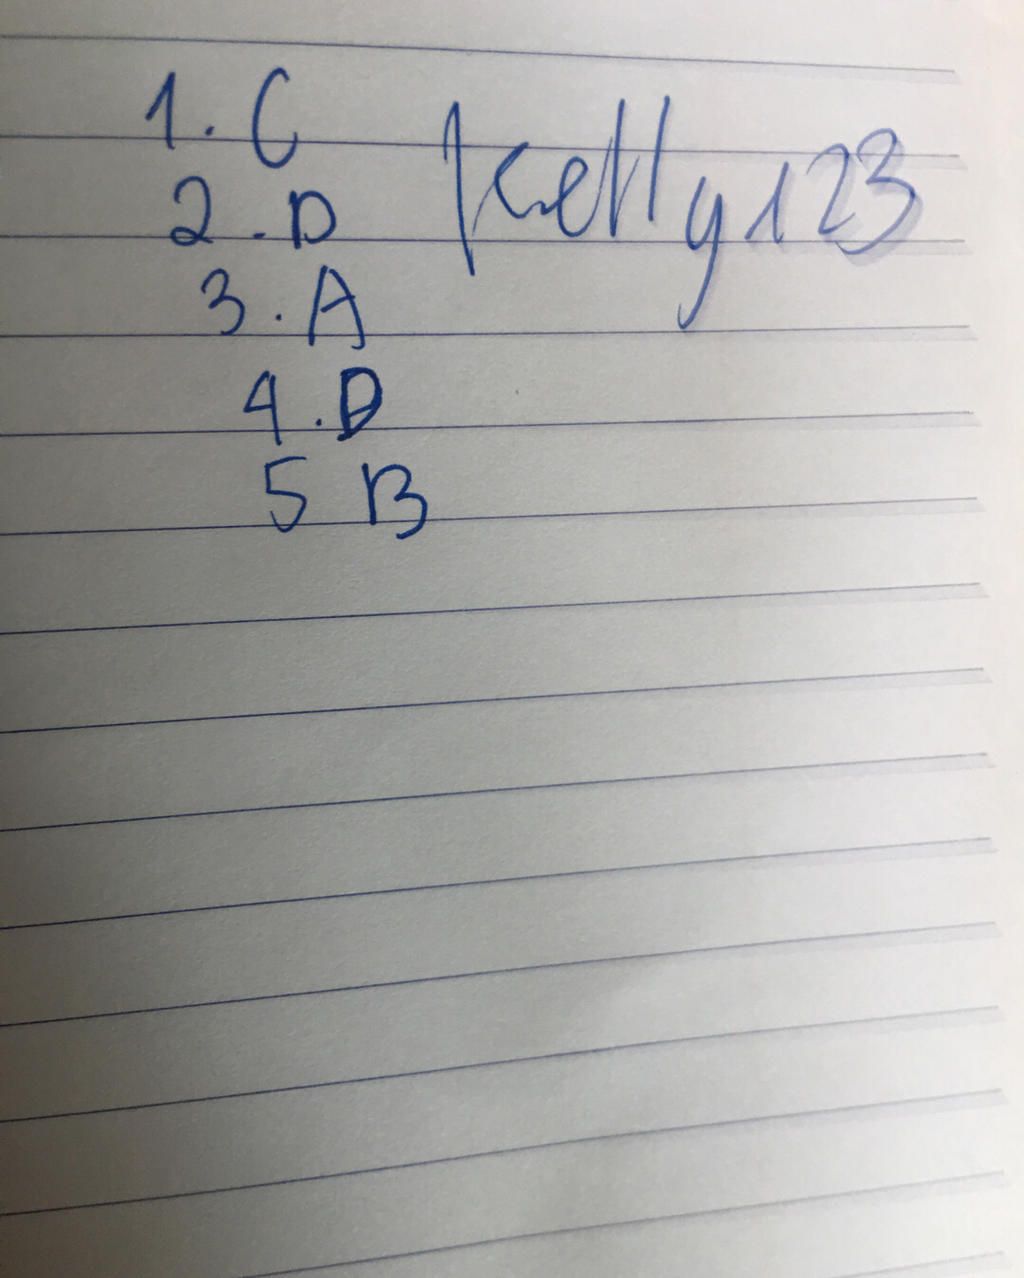 1. C
Kelly123
2. D
3. A
4. D
5 B